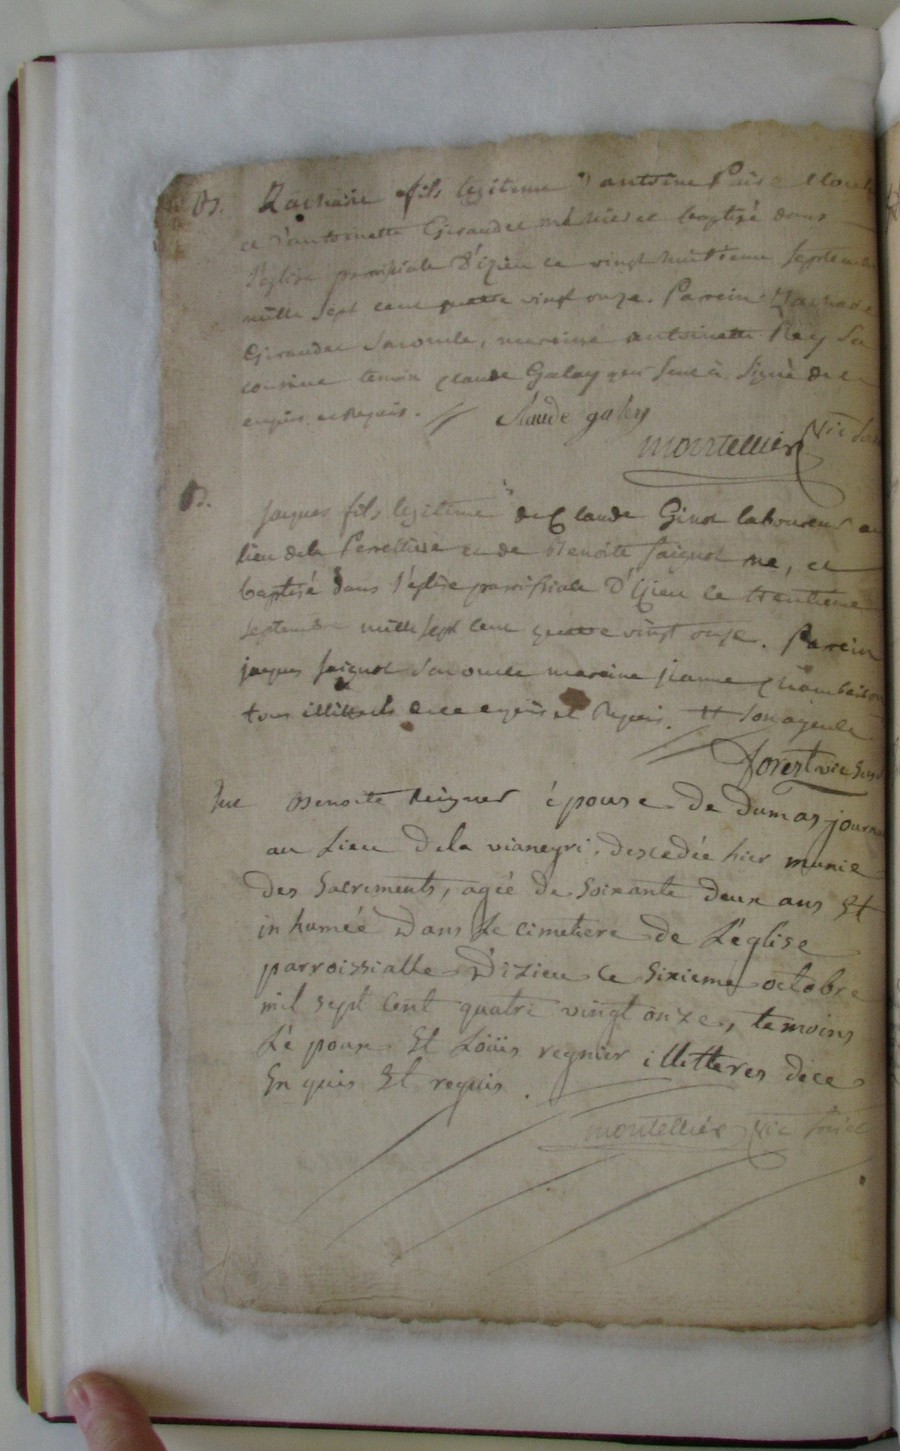 B. Zacharie fils legitime d'antoine
et d'antoinette Giraudet né hier et baptisé dans
l'eglise parroissiale d'izieu ce vingt huitieme septembre
mille sept cent quatre vingt onze. Parein Zacharie
Giraudet son oncle, mareine antoinette Rey sa
cousine temoin claude Galay qui seul à signé de ce
enquis et Requis. claude galay
montellier Vic
B. jacques fils legitime de Claude Ginot laboureur au
lieu de la et de Benoite faignot né, et
baptisé dans l'eglise parroissiale d'izieu le trentieme
septembre mille sept cent quatre vingt onze. Parein
jacques faignot son oncle mareine jeanne
tous illitterés de ce enquis et Requis. ## son ayeule
forest vic
Sre Benoite Reigner épouse de Dumas journ
au Lieu de la vianeyri, descedée hier munie
des Sacrements, agée de Soixante deux ans Et
inhumée Dans Le cimetiere de L'eglise
parroissialle D'izieu Ce Sixieme octobre
mil sept Cent quatre vingt onze, temoins
L'e poux Et Loüis regnier illetteres dece
En quis Et requis.
montellier Vic